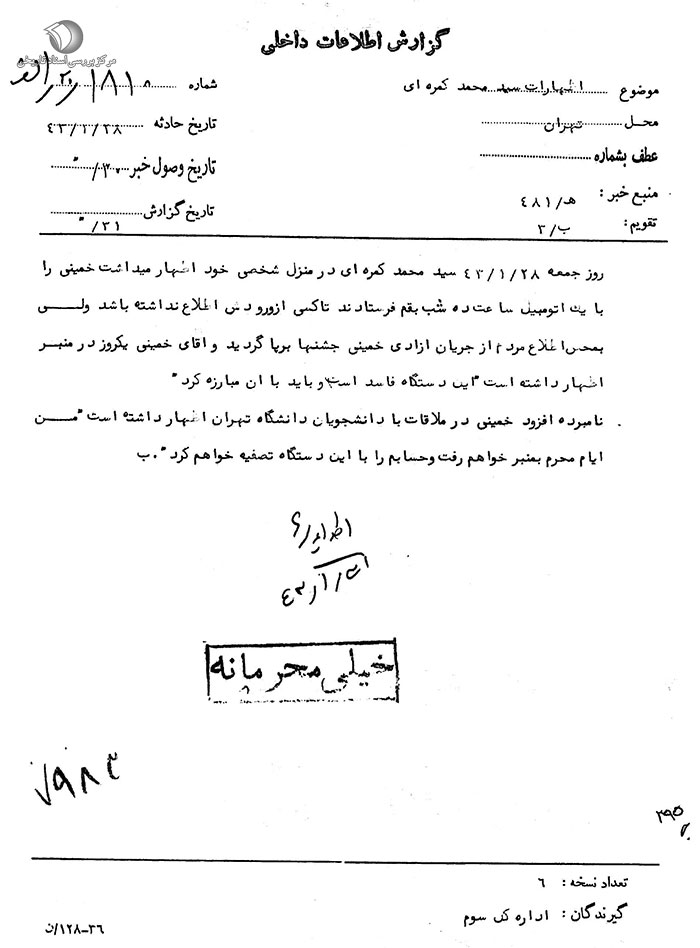 مرکز بررسی اسناد تاریخی
گزارش اطلاعات داخلی
موضوع اظهارات سید محمد کمره ای
شماره ۸۱۰
محل تهران
تاریخ حادثه ۴۳/۱/۲۸
عطف بشماره
تاریخ وصول خبر ۳۰/ "
منبع خبر : هـ/۴۸۱
تاریخ گزارش ۳۱/ "
تقویم : ب/۳
روز جمعه ۴۳/۱/۲۸ سید محمد کمره ای در منزل شخصی خود اظهار میداشت خمینی را
با یک اتومبیل ساعت ده شب بقم فرستادند تاکسی ازورودش اطلاع نداشته باشد ولی
بمحض اطلاع مردم از جریان ازادی خمینی جشنها برپا گردید و اقای خمینی یکروز در منبر
اظهار داشته است "این دستگاه فاسد است و باید با ان مبارزه کرد"
نامبرده افزود خمینی در ملاقات با دانشجویان دانشگاه تهران اظهار داشته است "من
ایام محرم بمنبر خواهم رفت وحسابم را با این دستگاه تصفیه خواهم کرد". ب
خیلی محرمانه
۳۹۵
تعداد نسخه : ۶
گیرندگان : اداره کل سوم
۳۶-۱۲۸/ن